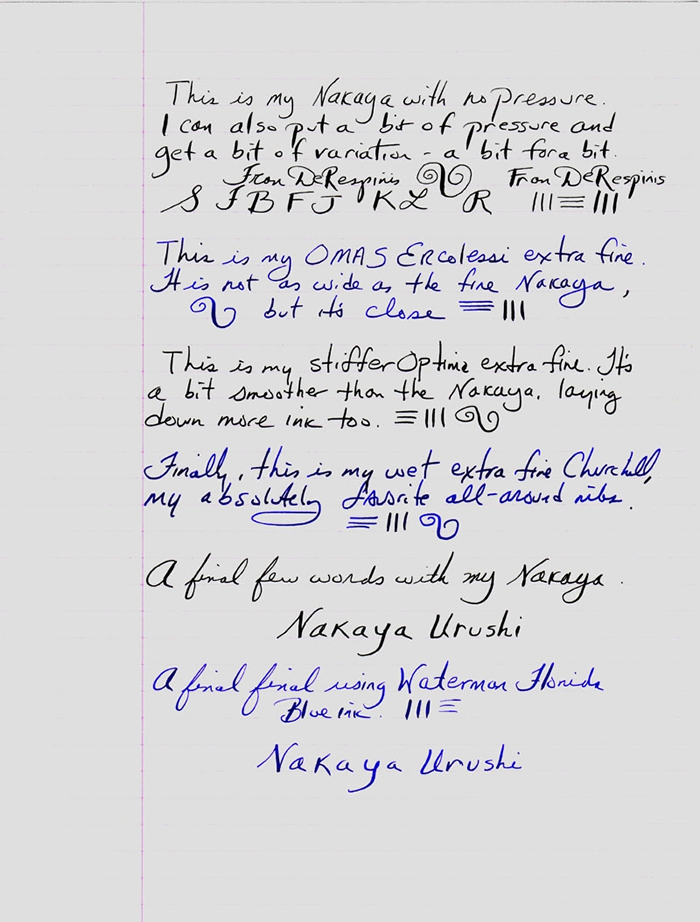 This is my Nakaya with no pressure.
I can also put a bit of pressure and
get a bit of variation - a bit for a bit.
From DeRespinis From DeRespinis
S J B F J K L R
This is my OMAS Ercolessi extra fine.
It is not as wide as the fine Nakaya,
but it's close
This is my stiffer Optima extra fine. It's
a bit smoother than the Nakaya, laying
down more ink too.
Finally, this is my wet extra fine Churchill,
my absolutely favorite all-around nibs.
A final few words with my Nakaya.
Nakaya Urushi
A final final using Waterman Florida
Blue ink.
Nakaya Urushi